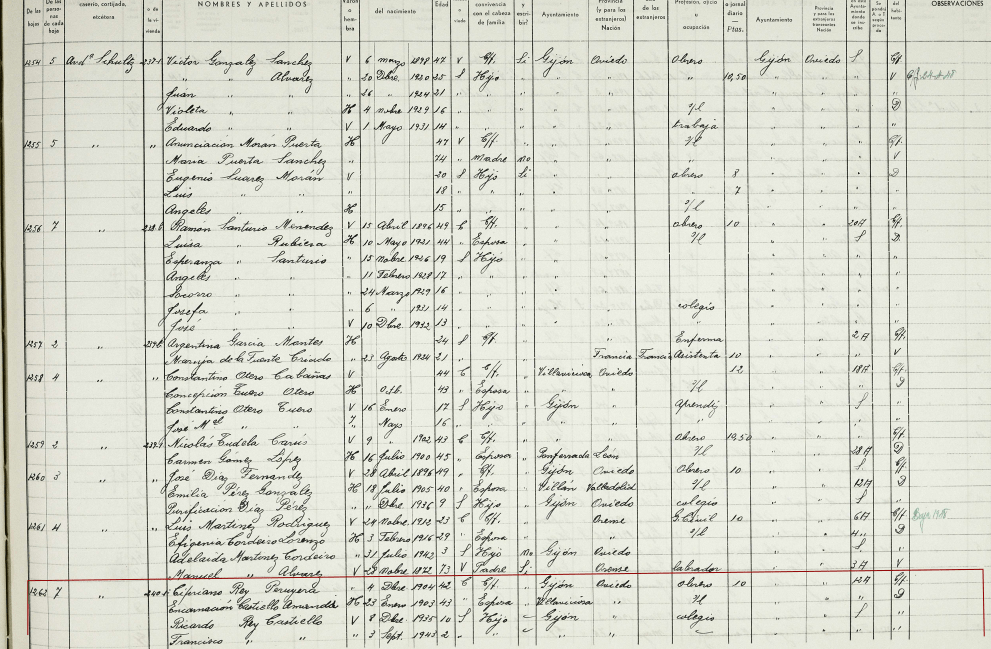 De las hojas De las personas de cada hoja caserío, cortijada, etcétera o de la vivienda NOMBRES Y APELLIDOS Varón o hembra del nacimiento Edad o viudo convivencia con el cabeza de familia y escribir? Ayuntamiento Provincia (y para los extranjeros) Nación de los extranjeros Profesión, oficio u ocupación o jornal diario Ptas. Ayuntamiento Provincia y para los extranjeros Nación del habitante OBSERVACIONES
1254 5 Avdª Schultz Victor Gonzalez Sanchez V 6 marzo 1898 47 V C/f. Si Gijón Oviedo Obrero Gijón Oviedo S C/f
" " Alvarez " 20 Dbre. 1920 25 S Hijo " " " " 10,50 " " " V
Juan " " " 26 " 1924 21 " " " " "
Violeta " " H 4 nobre 1929 16 " " " " " s/l " " " D
Eduardo " " V 1 Mayo 1931 14 " " " " " trabaja
1255 5 " Anunciacion Morán Puerta H 47 V C/f. " " " s/l " " " C/f.
Maria Puerta Sanchez " 74 " Madre no " " " " " " V
Eugenio Suarez Morán V 20 S Hijo Si " " obrero 8 " " " D
Luis " " " 18 " " " " " " 7 " " "
Angeles " " H 15 " " " " " s/l " " "
1256 7 " Ramón Santurio Menendez V 15 Abril 1896 49 C C/f. " " " obrero 10 " " 20A C/f.
Luisa " Rubiera H 10 Mayo 1921 44 " Esposa " " " s/l " " S D.
Esperanza " Santurio " 15 nobre 1926 19 S Hijo " " " " " " "
Angeles " " " 11 Febrero 1928 17 " " " " " " " " "
Socorro " " " 24 Marzo 1929 16 " " " " " " " "
Josefa " " " 6 " 1931 14 " " " " " colegio " " "
José " " V 10 Dbre. 1932 13 " " " " " " " " "
1257 2 " Argentina Garcia Montes H 24 S C/f. " " " Enferma " " 2A C/f.
Maruja de la Fuente Criado " 23 Agosto 1924 21 " " Francia Francia Asistenta 10 " " " V
1258 4 " " Constantino Otero Cabañas V 44 C C/f. " Villaviciosa Oviedo 12 " " 18A C/f
Concepcion Tuero Otero H 43 " Esposa " " " s/l " " " D
Constantino Otero Tuero V 16 Enero 17 S Hijo " Gijón " Aprendiz " " S "
José Mel " " " Mayo 16 " " " " " " " " "
1259 2 " Nicolás Tudela Carús V 9 " 1902 43 C C/f. " " " Obrero 19,50 " " " C/f.
Carmen Gómez López H 16 Julio 1900 45 " Esposa " Ponferrada León s/l " " 28A D
1260 3 " José Diaz Fernandez V 28 Abril 1896 49 " C/f. " Gijón Oviedo Obrero 10 " " S C/f.
Emilia Pérez Gonzalez H 18 Julio 1905 40 " Esposa " Villán Valladolid s/l " " 12A D
Purificación Diaz Pérez " " Dbre. 1936 9 S Hijo " Gijón Oviedo colegio " " S "
1261 4 " " Luis Martinez Rodriguez V 24 Nobre. 1912 23 C C/f. " " Orense G. Civil 10 " " 6A C/f
Efigenia Cordeiro Lorenzo H 3 Febrero 1916 29 " Esposa " " " s/l " " 4" D
Adelaida Martinez Cordeiro " 31 Julio 1942 3 S Hijo no Gijón Oviedo " " S "
Manuel " Alvarez V 28 Nobre 1872 73 V Padre Si " Orense labrador " " 3A V
1262 7 " Cipriano Rey Peruyera " 4 Dbre 1904 42 C C/f. " Gijón Oviedo Obrero 10 " " 12A C/f.
Encarnación Castiello Amandi H 23 Enero 1903 43 " Esposa " Villaviciosa " s/l " " " D
Ricardo Rey Castiello V 8 Dbre. 1935 10 S Hijo Gijón " colegio " " S "
Francisco " " " 3 Sept. 1943 2 " " " " " " "